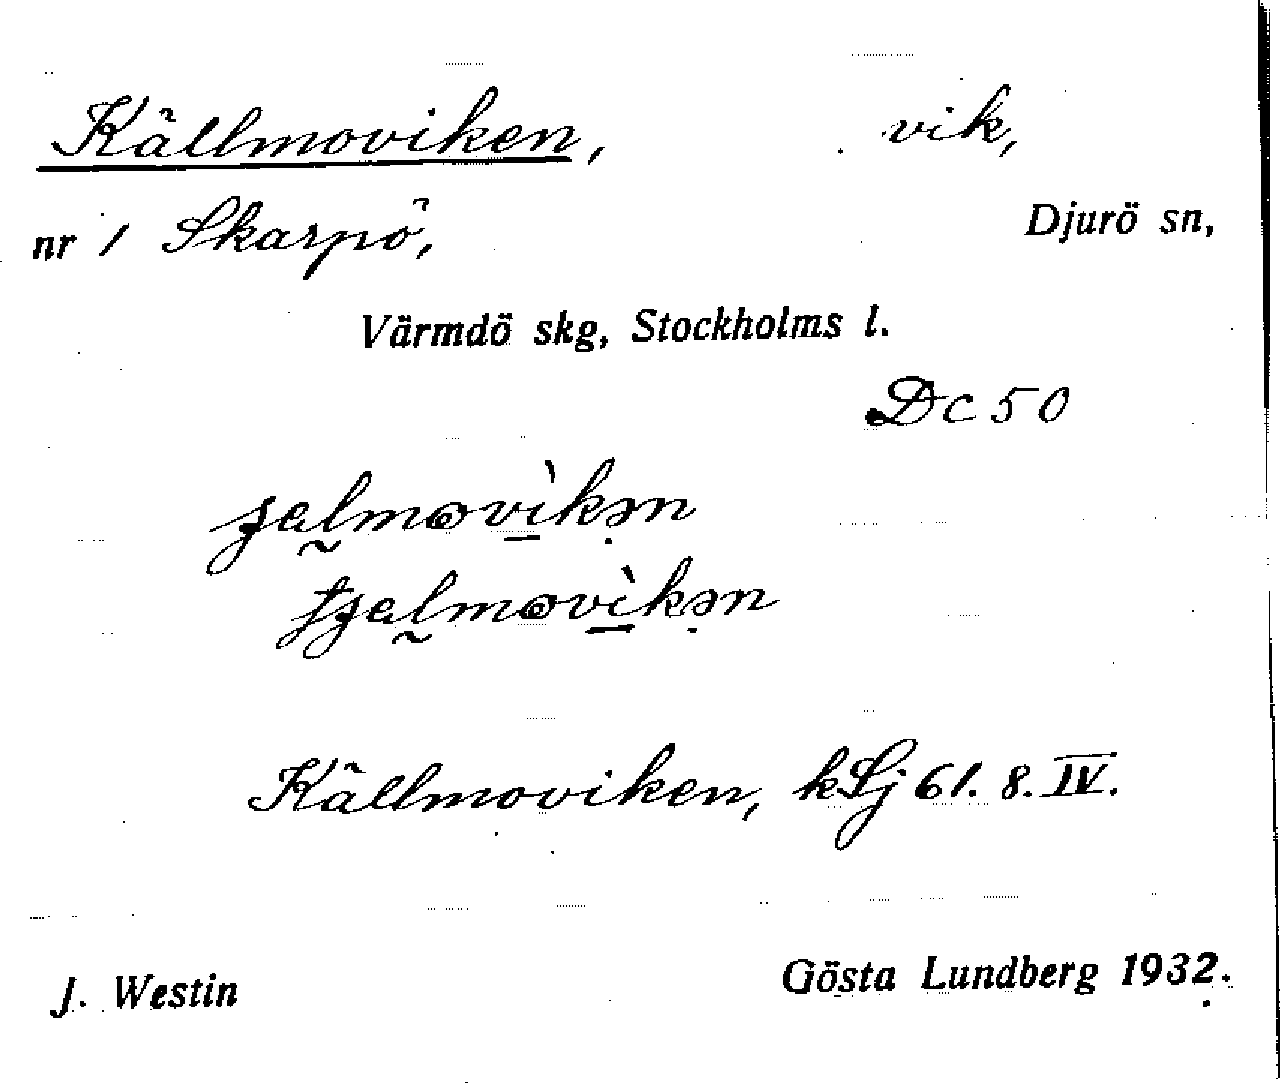 Källmoviken, vik,
nr 1 Skarpö, Djurö sn,
Värmdö skg, Stockholms l.
Dc 50
Källmoviken, kLj 61. 8. IV.
J. Westin Gösta Lundberg 1932.